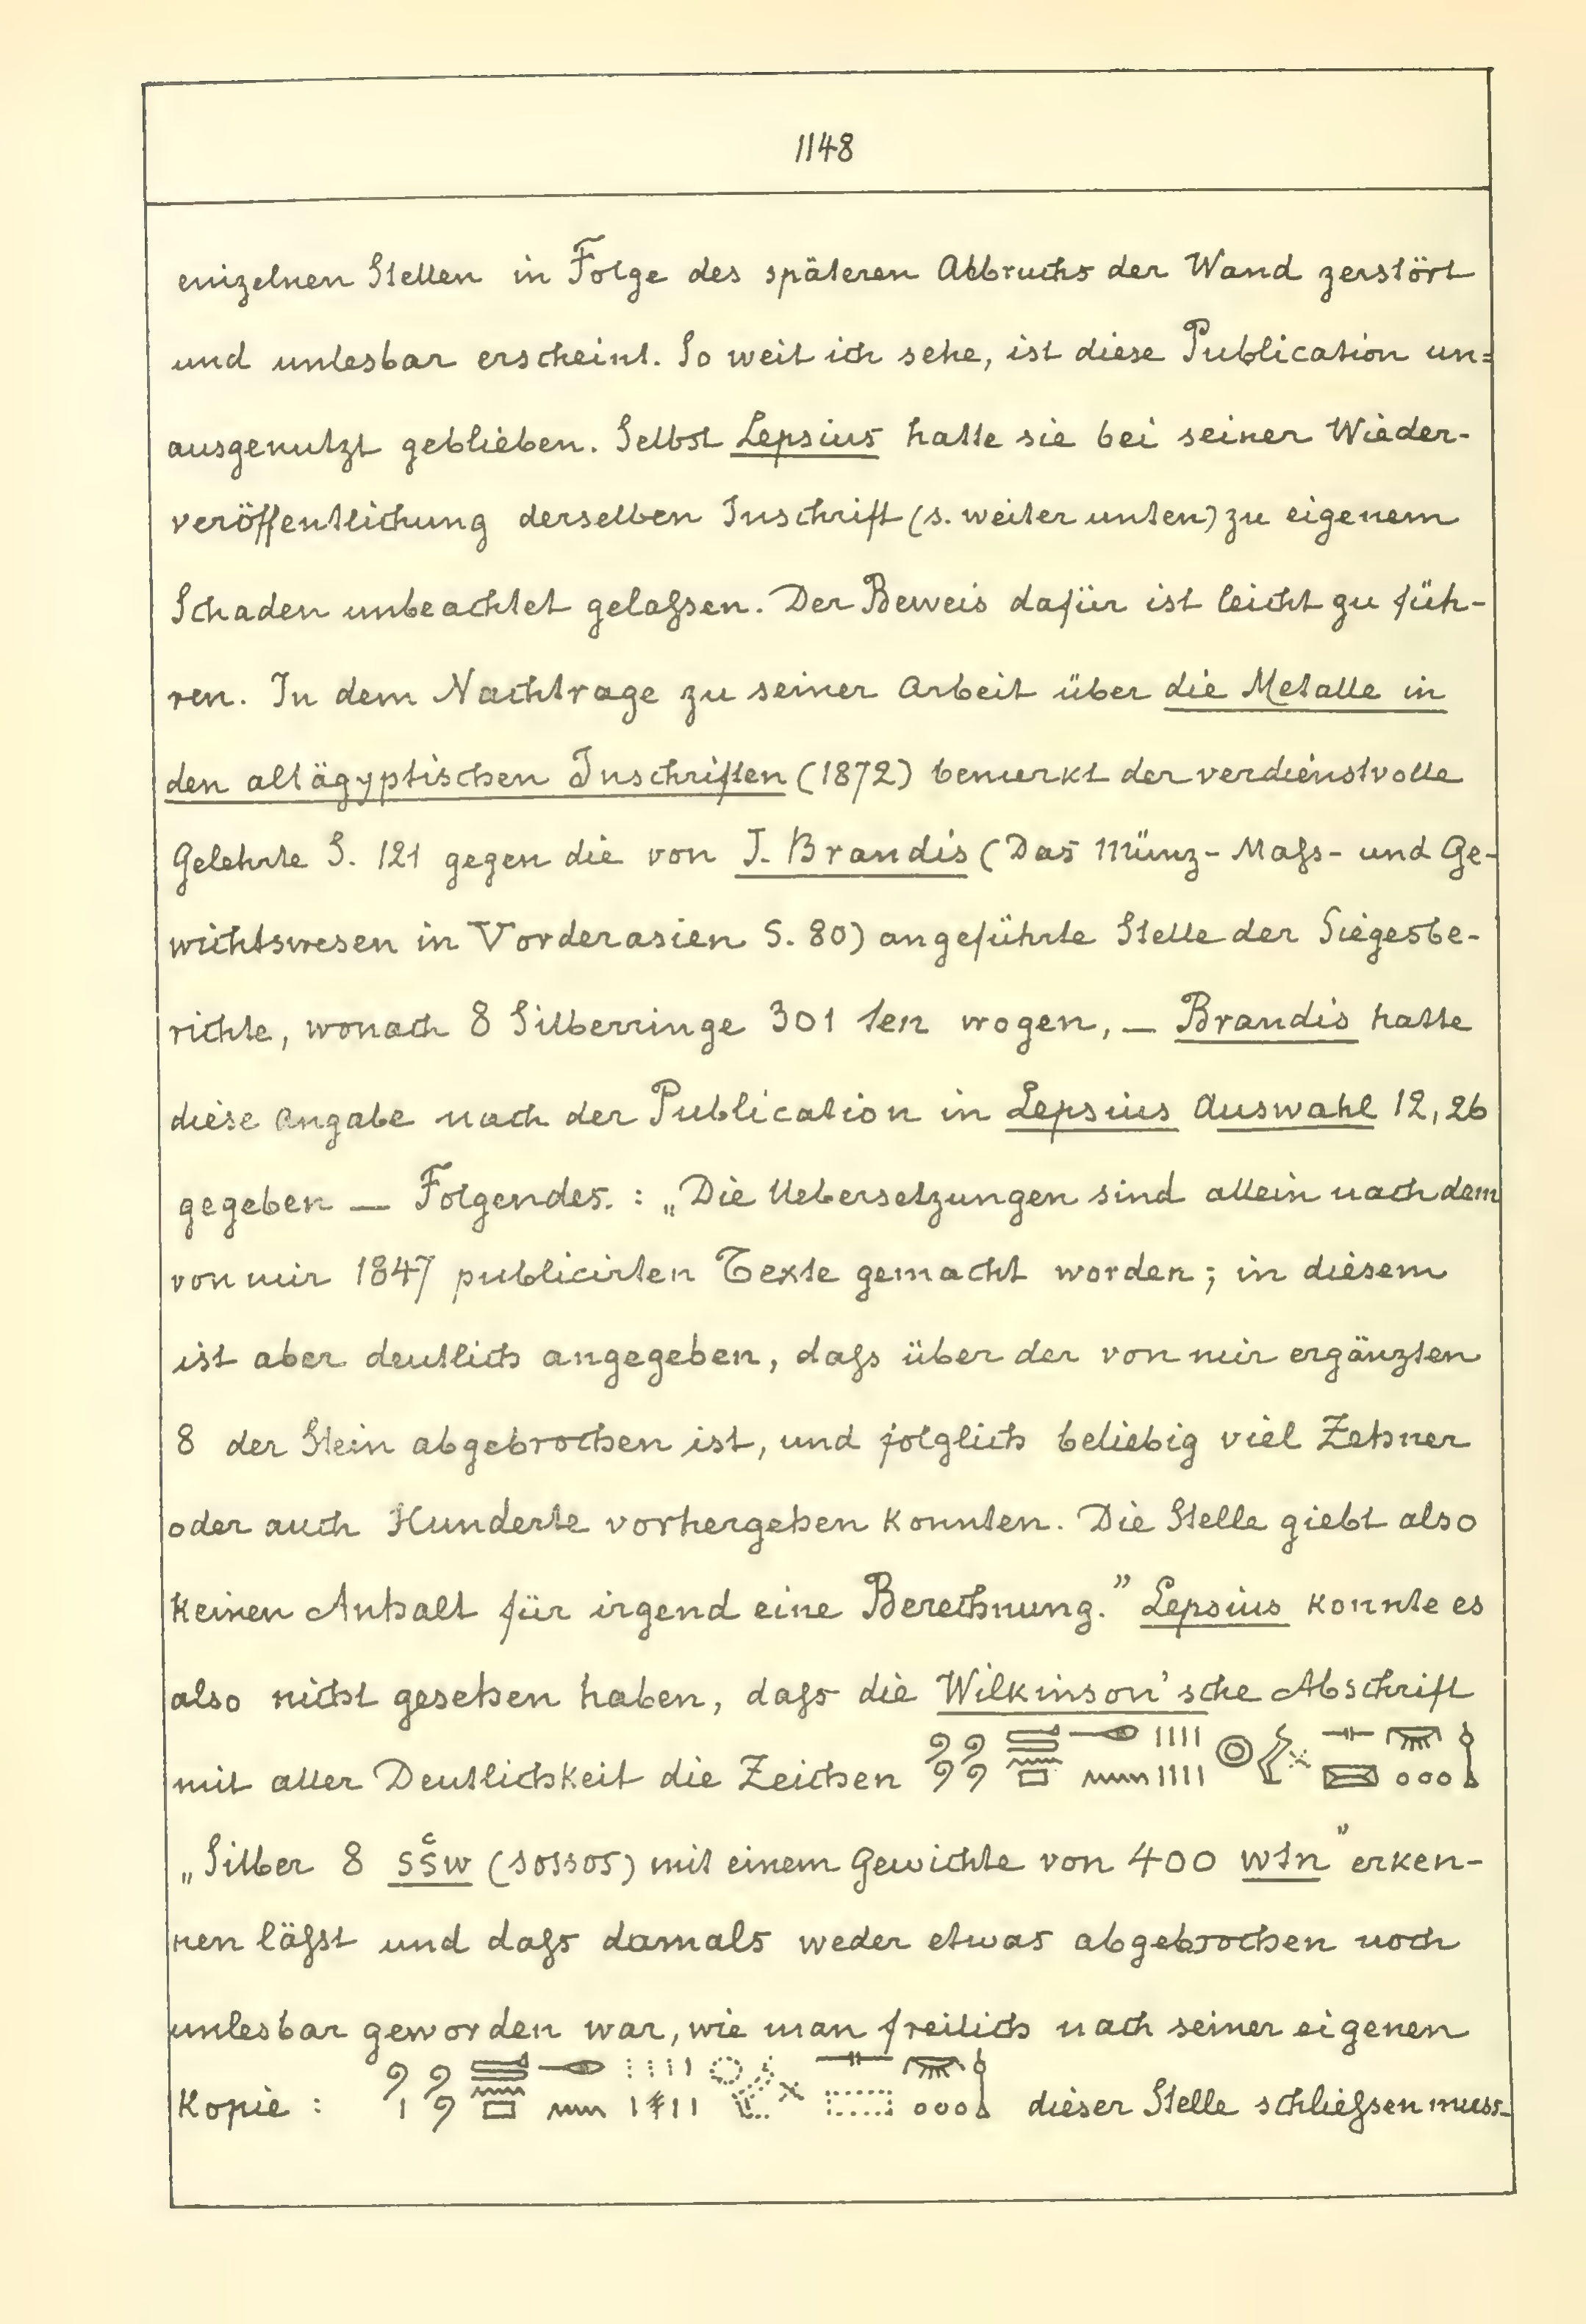 1148
einzelnen Stellen in Folge des späteren Abbruchs der Wand zerstört
und unlesbar erscheint. So weit ich sehe, ist diese Publication un=
ausgenutzt geblieben. Selbst Lepsius hatte sie bei seiner Wieder-
veröffentlichung derselben Inschrift (s. weiter unten) zu eigenem
Schaden unbeachtet gelaßen. Der Beweis dafür ist leicht zu füh-
ren. In dem Nachtrage zu seiner Arbeit über die Metalle in
den altägyptischen Inschriften (1872) bemerkt der verdienstvolle
Gelehrte S. 121 gegen die von J. Brandis (Das Münz- Maß- und Ge-
wichtswesen in Vorderasien S. 80) angeführte Stelle der Siegesbe-
richte, wonach 8 Silberringe 301 ten wogen, — Brandis hatte
diese Angabe nach der Publication in Lepsius Auswahl 12, 26
gegeben — Folgendes. : „Die Uebersetzungen sind allein nach dem
von mir 1847 publicirten Texte gemacht worden; in diesem
ist aber deutlich angegeben, daß über der von mir ergänzten
8 der Stein abgebrochen ist, und folglich beliebig viel Zehner
oder auch Hunderte vorhergehen konnten. Die Stelle giebt also
keinen Anhalt für irgend eine Berechnung.” Lepsius konnte es
also nicht gesehen haben, daß die Wilkinson'sche Abschrift
mit aller Deutlichkeit die Zeichen
„Silber 8 sšw (sossos) mit einem Gewichte von 400 wtn” erken-
nen läßt und daß damals weder etwas abgebrochen noch
unlesbar geworden war, wie man freilich nach seiner eigenen
Kopie : dieser Stelle schließen muss-